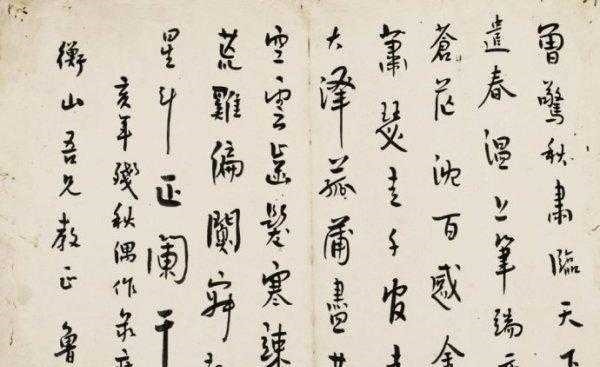 曾驚秋肅臨天下
遣春溫上筆端
蒼茫沈百感金
蕭瑟走千官
大澤菰蒲盡
空雲齒髮寒竦
荒雞偏闃寂
星斗正闌干
亥年殘秋偶作錄應
衡山吾兄教正 魯